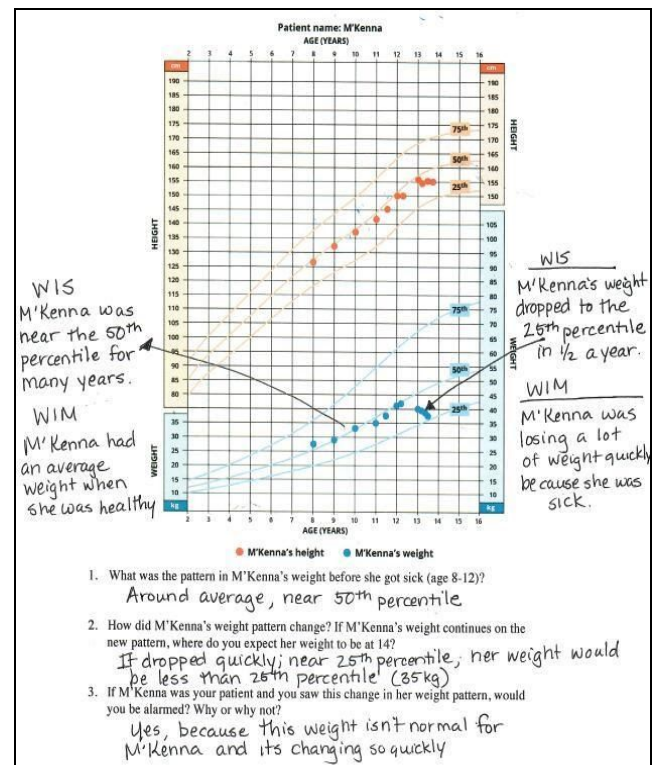 Patient name: M'Kenna
AGE (YEARS)
2 3 4 5 6 7 8 9 10 11 12 13 14 15 16
cm cm
190 190
185 185
180 180
175 75th 175
170 170
165 165
160 50th 160
155 25th 155
150 150
145
140 105
135 100
130 95
125 90
120 85
115 80
110 75th 75
105 70
100 65
95 60
90 50th 55
85 50
80 45
25th 40
35 35
30 30
25 25
20 20
15 15
10 10
kg kg
HEIGHT
WEIGHT
HEIGHT
WEIGHT
2 3 4 5 6 7 8 9 10 11 12 13 14 15 16
AGE (YEARS)
M'Kenna's height M'Kenna's weight
WIS
M'Kenna was
near the 50th
percentile for
many years.
WIM
M'Kenna had
an average
weight when
she was healthy
WIS
M'Kenna's weight
dropped to the
25th percentile
in 1/2 a year.
WIM
M'Kenna was
losing a lot
of weight quickly
because she was
sick.
1. What was the pattern in M'Kenna's weight before she got sick (age 8-12)?
Around average, near 50th percentile
2. How did M'Kenna's weight pattern change? If M'Kenna's weight continues on the
new pattern, where do you expect her weight to be at 14?
It dropped quickly; near 25th percentile, her weight would
be less than 25th percentile (35kg)
3. If M'Kenna was your patient and you saw this change in her weight pattern, would
you be alarmed? Why or why not?
Yes, because this weight isn't normal for
M'Kenna and its changing so quickly